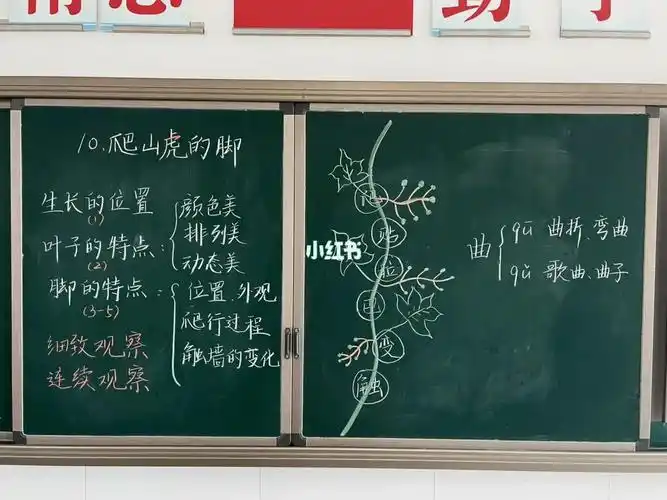 10.爬山虎的脚
生长的位置
(1)
叶子的特点:
(2)
颜色美
排列美
动态美
脚的特点:
(3-5)
位置、外观
爬行过程
触墙的变化
细致观察
连续观察
小红书
贴
拉
巴
变
触
曲
qū 曲折、弯曲
qǔ 歌曲、曲子